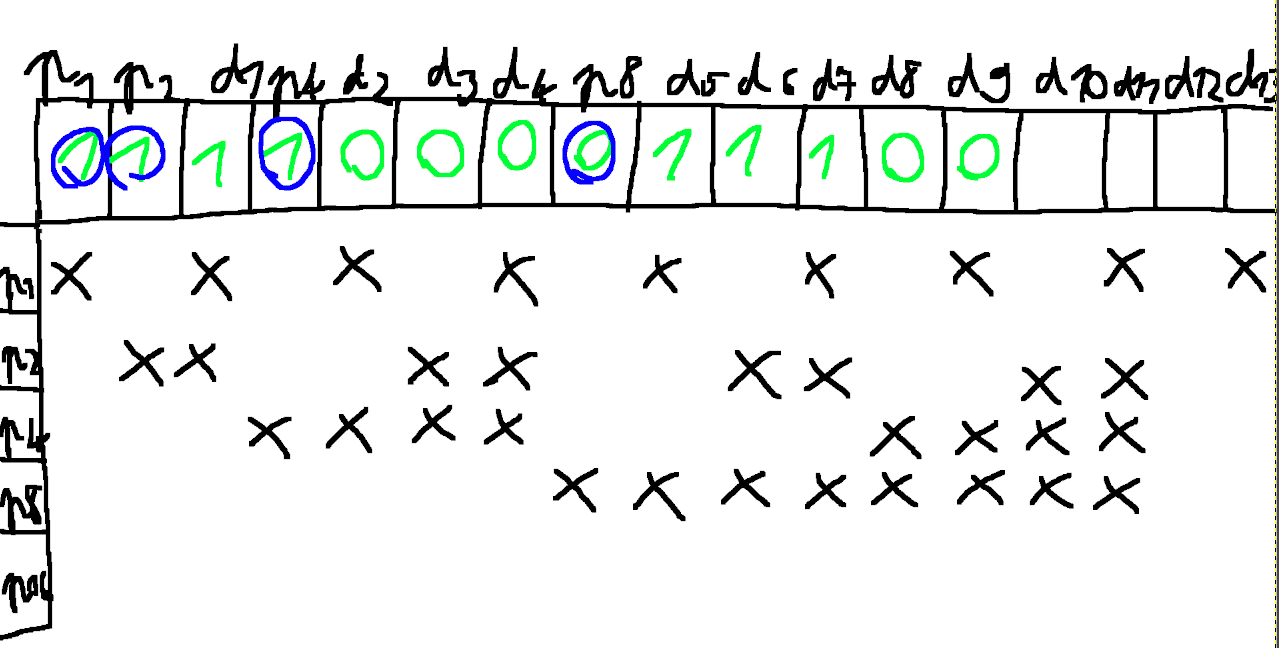 p1 p2 d1 p4 d2 d3 d4 p8 d5 d6 d7 d8 d9 d10 d11 d12 d13
1 1 1 1 0 0 0 0 1 1 1 0 0
p1 X X X X X X X X X
p2 X X X X X X X X
p4 X X X X X X X X
p8 X X X X X X X X